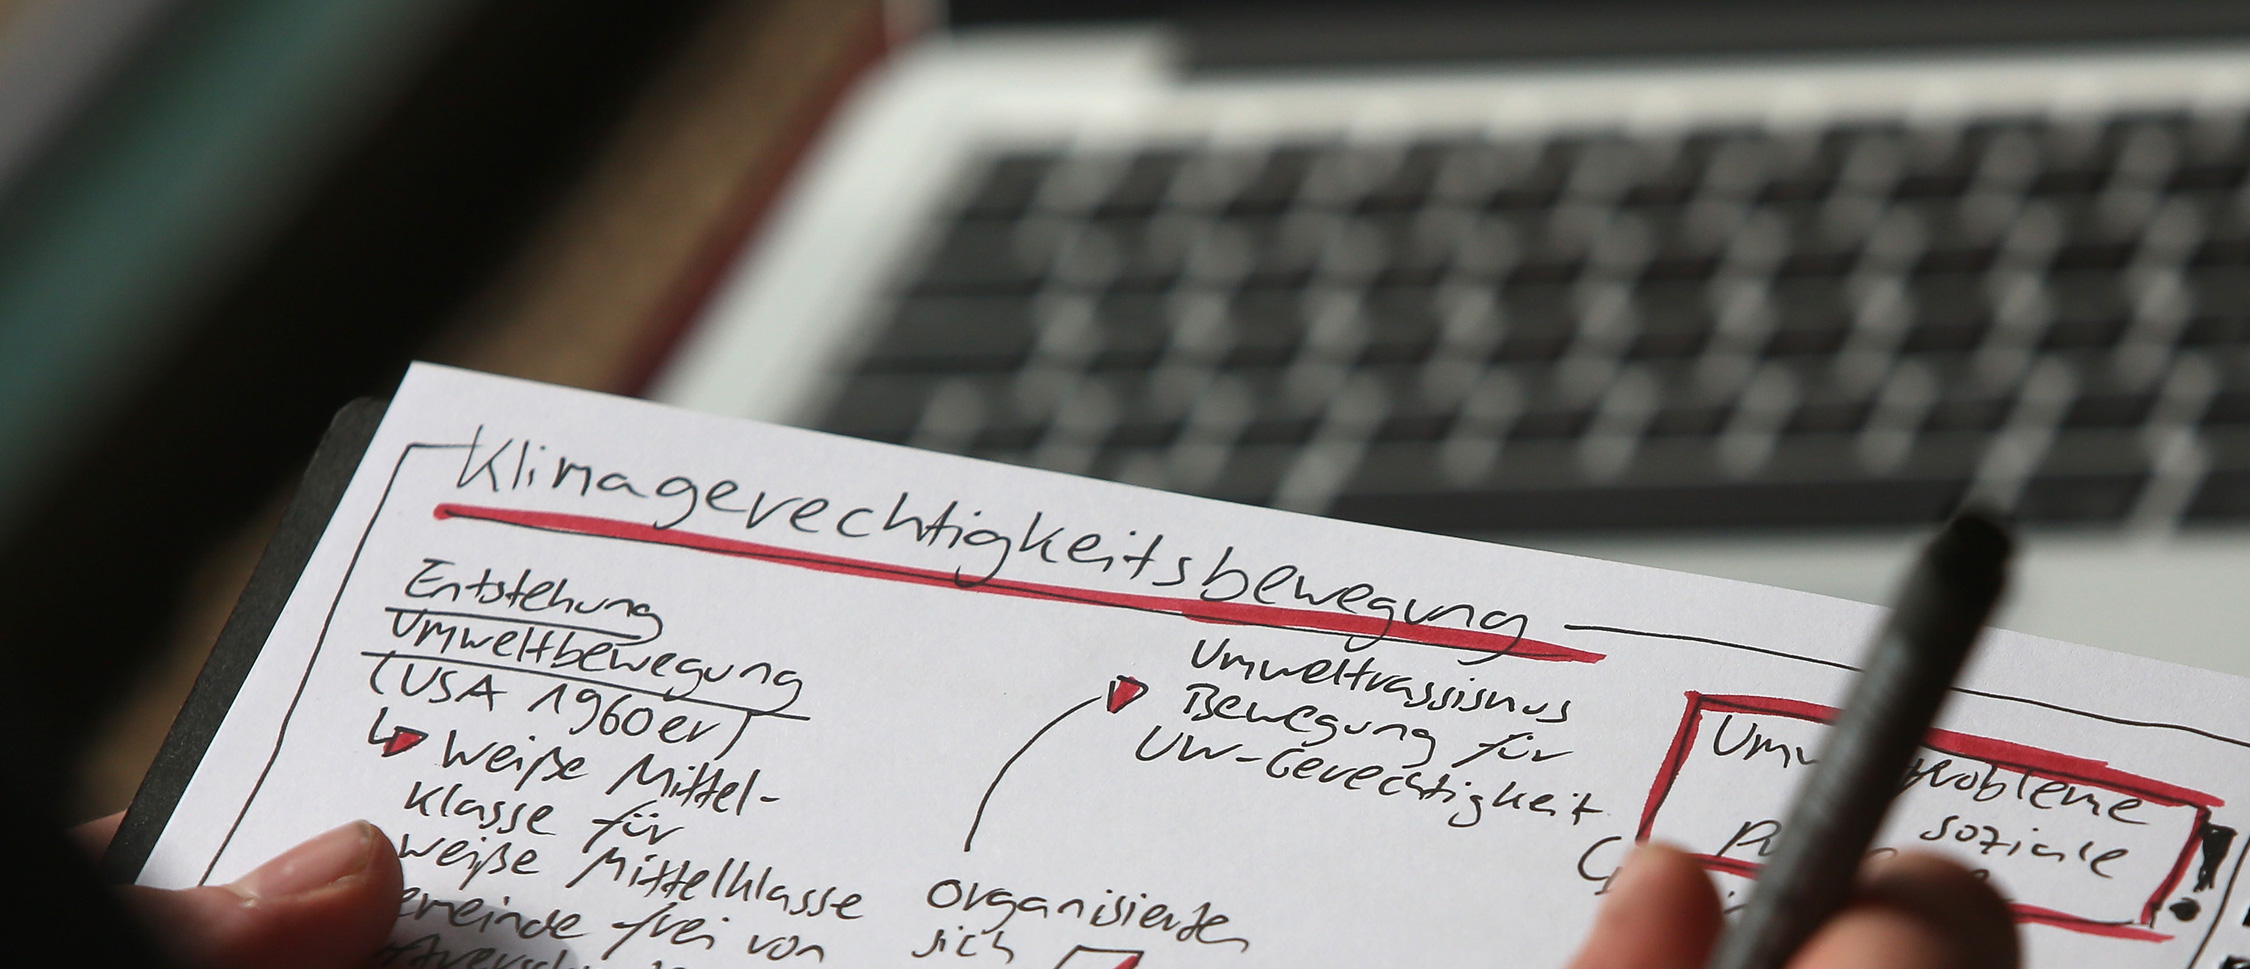 Klimagerechtigkeitsbewegung
Entstehung
Umweltbewegung
(USA 1960er)
Weiße Mittel-
klasse für
weiße Mittelklasse
frei von
Umweltrassismus
Bewegung für
UW-Gerechtigkeit
organisierten
sich
soziale